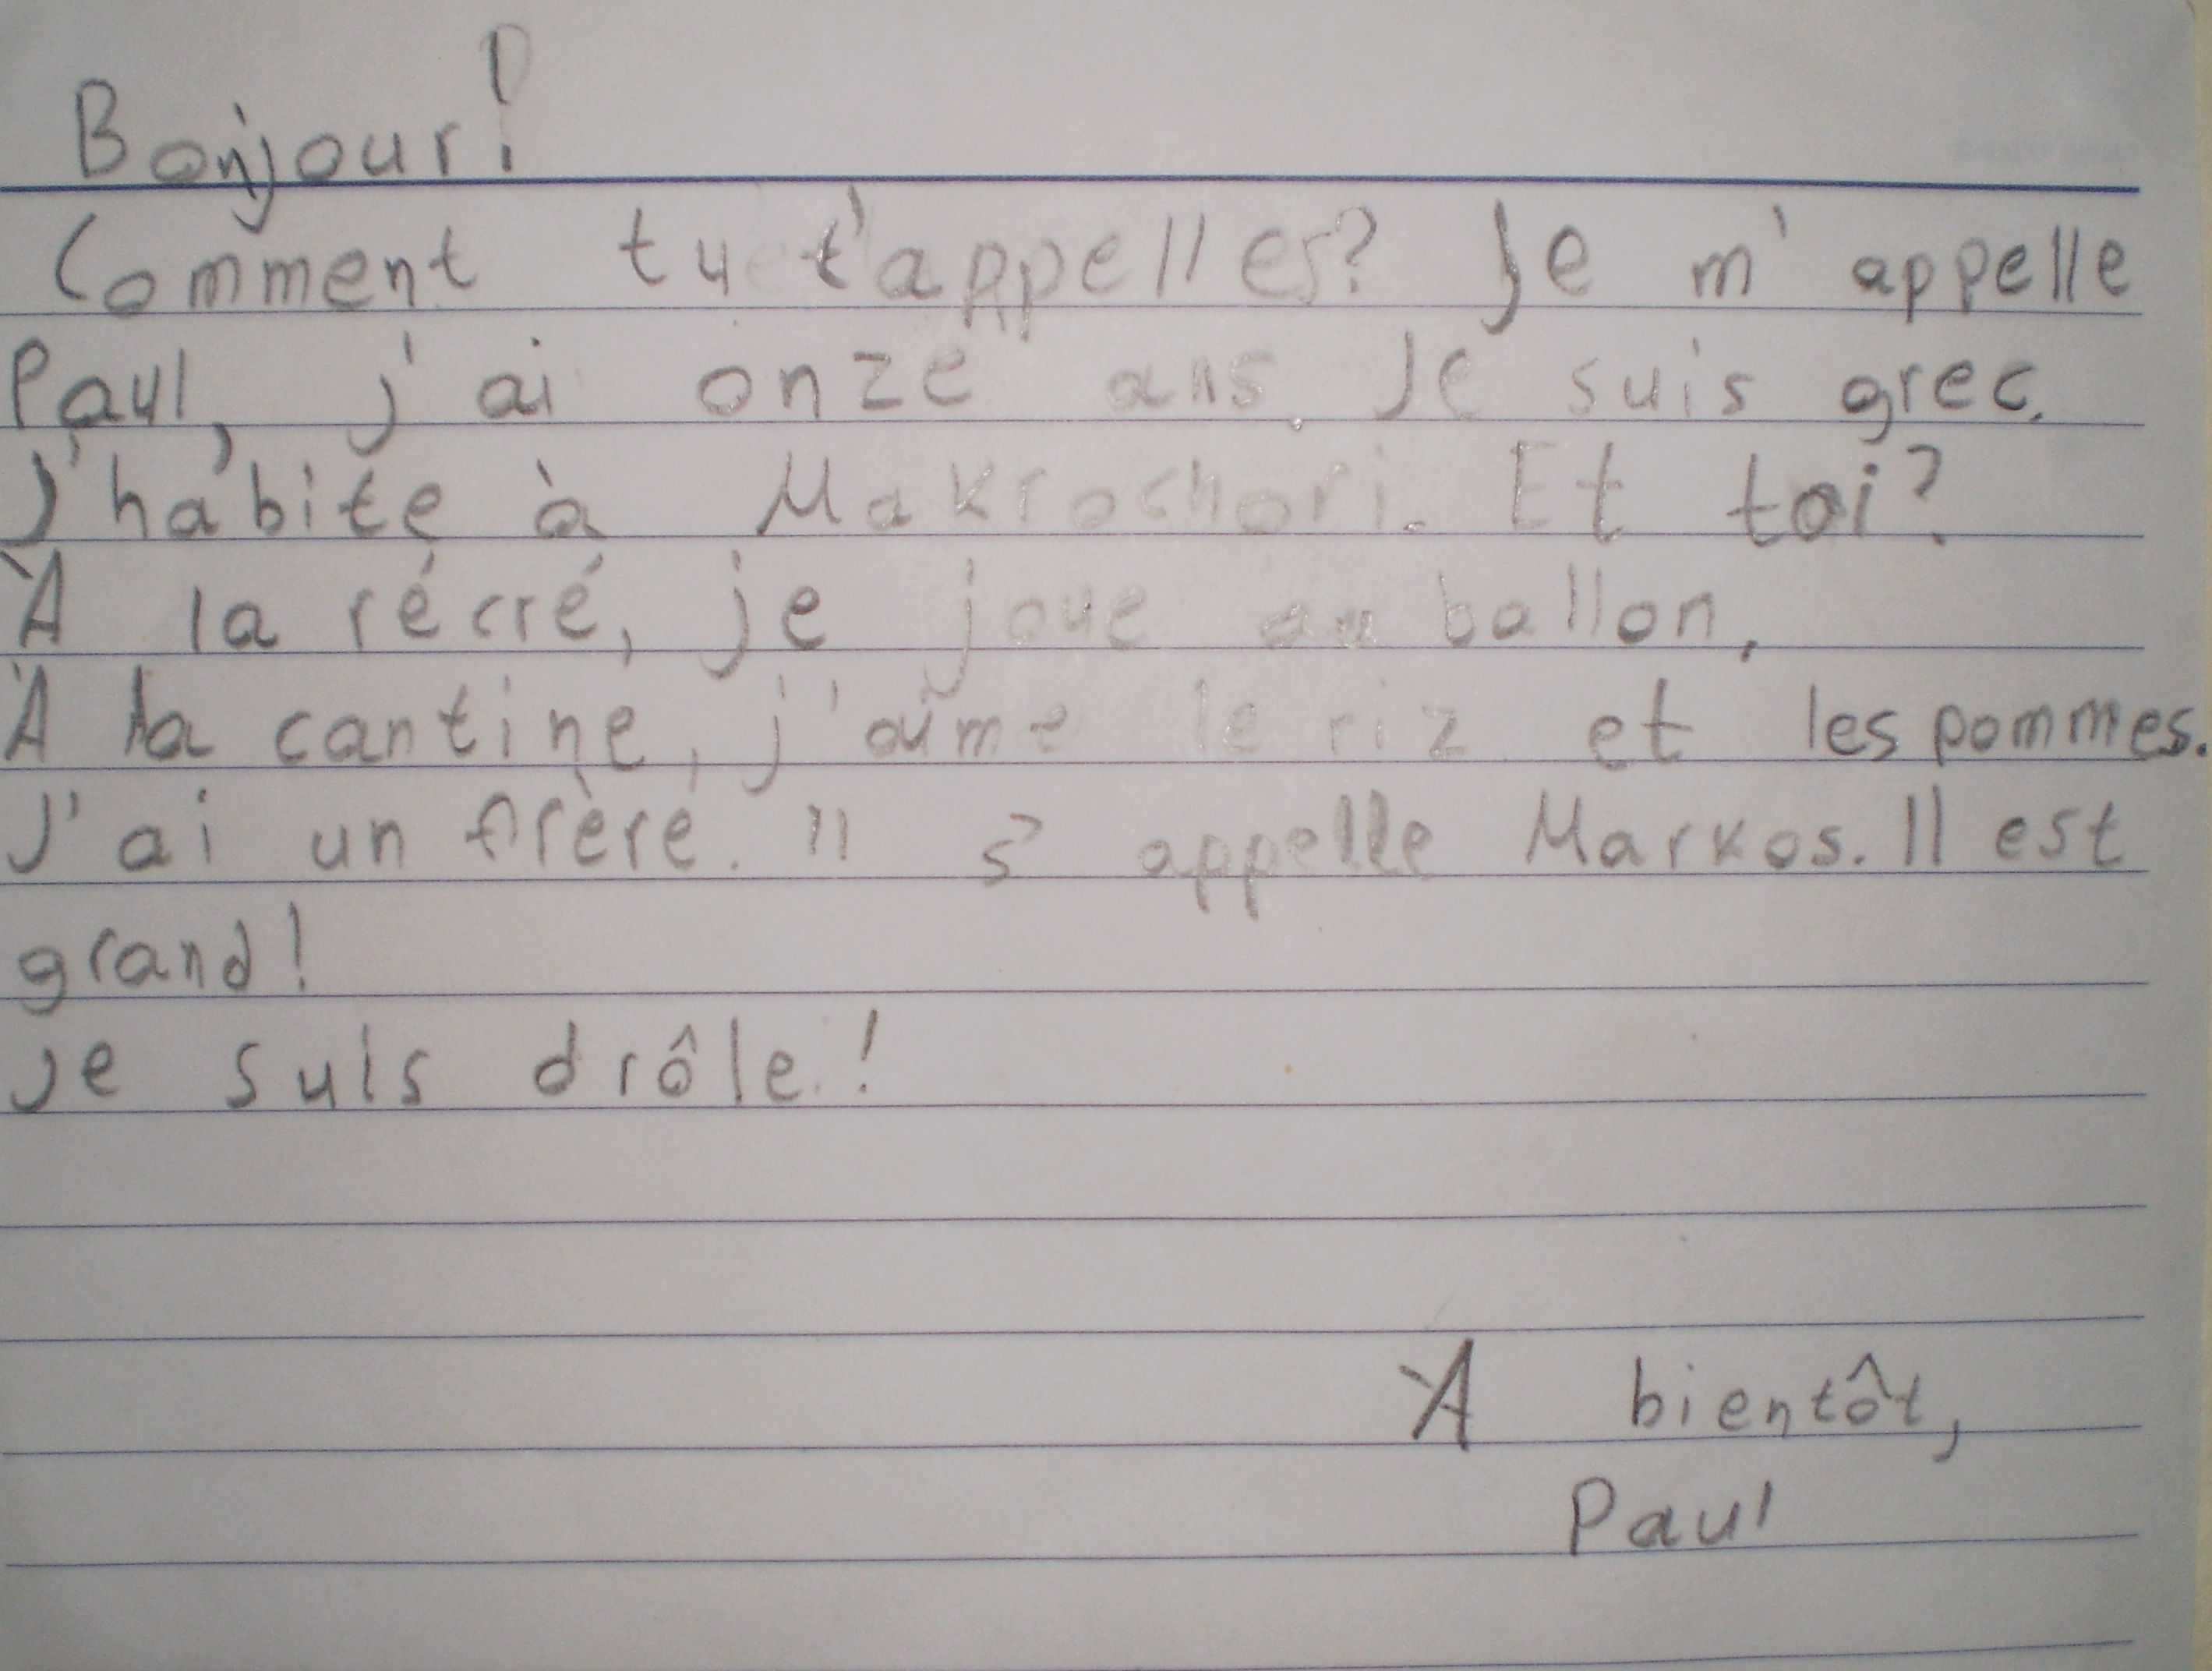 Bonjour!
Comment tu t'appelles? Je m'appelle
Paul, j'ai onze ans. Je suis grec.
J'habite à Makrochori. Et toi?
À la récré, je joue au ballon.
À la cantine, j'aime le riz et les pommes.
J'ai un frère. Il s'appelle Markos. Il est
grand!
je suis drôle!
À bientôt,
Paul